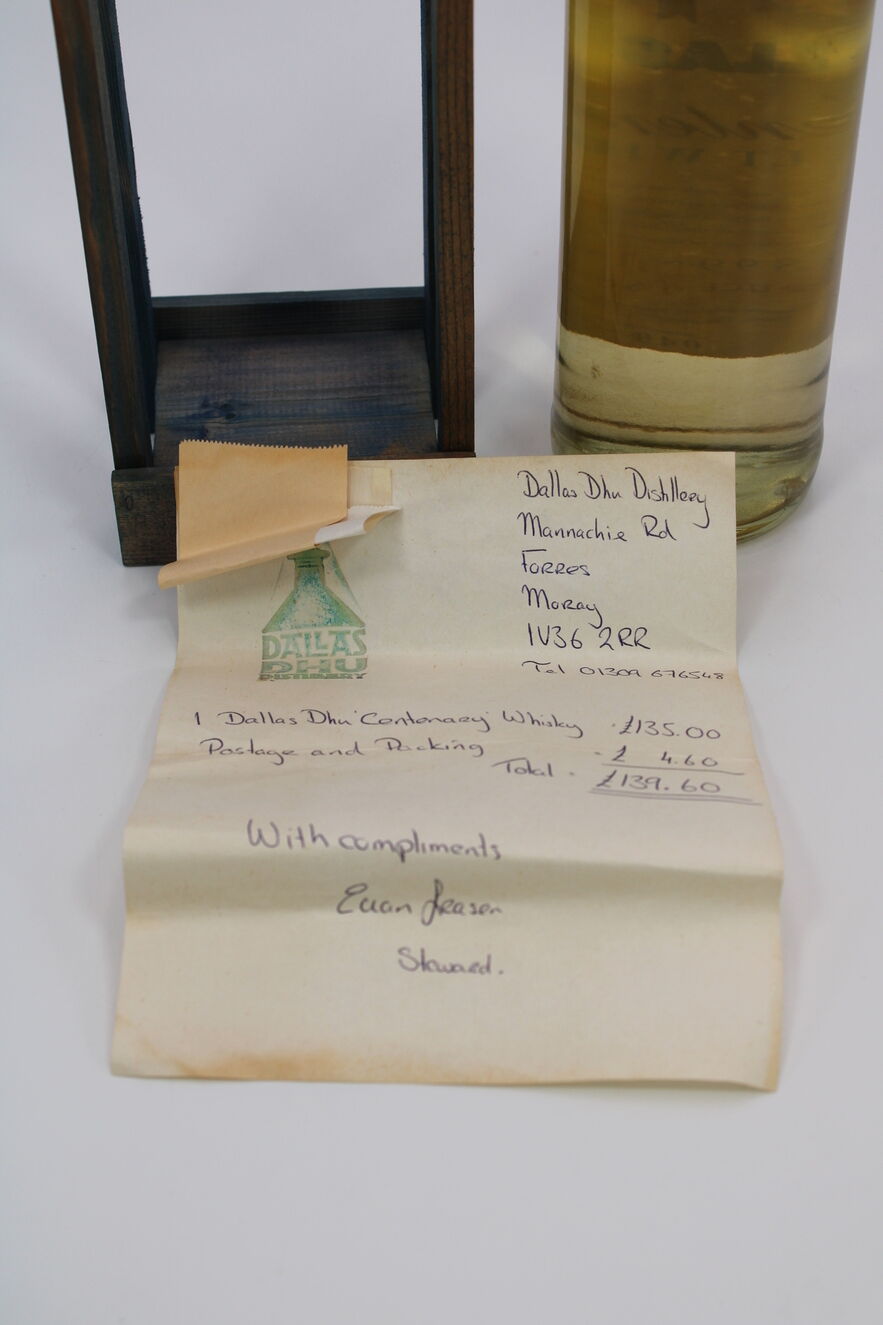 Dallas Dhu Distillery
Mannachie Rd
Forres
Moray
IV36 2RR
Tel 01309 676548
DALLAS
DHU
DISTILLERY
1 Dallas Dhu 'Centenary' Whisky £135.00
Postage and Packing £ 4.60
Total £139.60
With compliments
Euan Fraser
Steward.